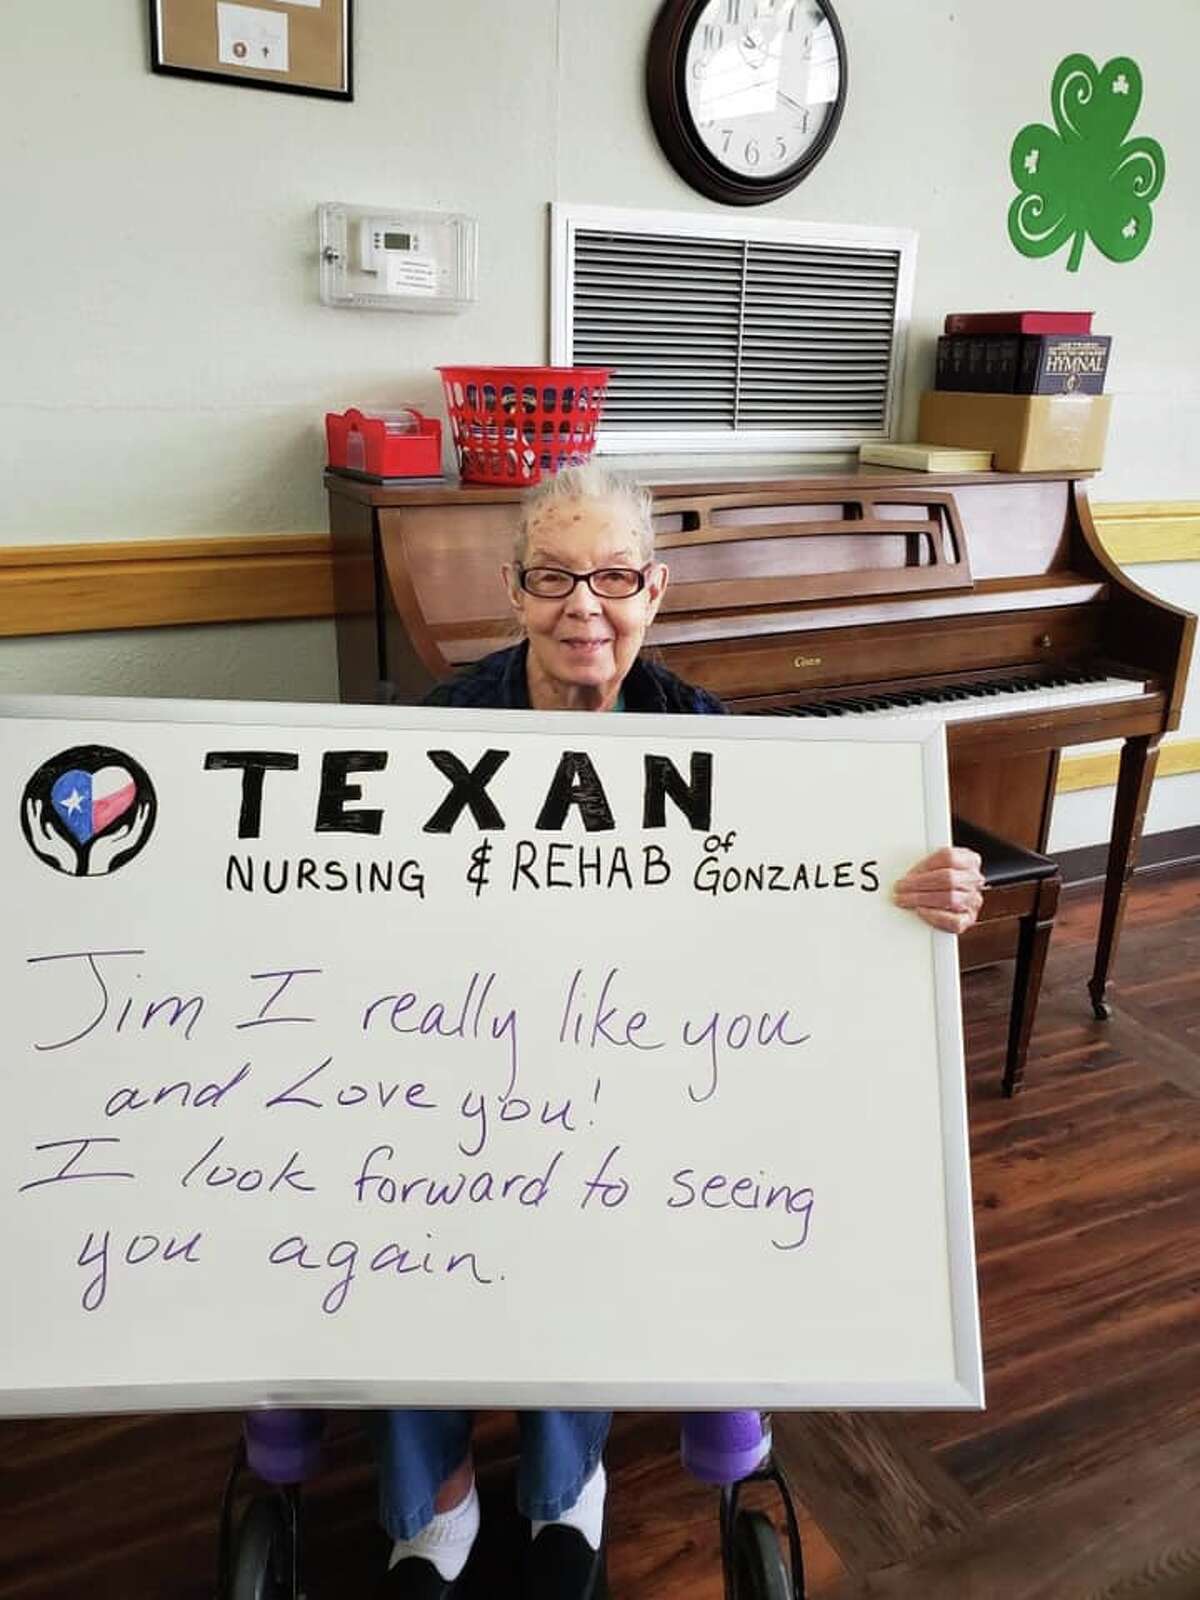 10
7 6 5
HYMNAL
TEXAN
NURSING & REHAB of GONZALES
Jim I really like you
and Love you!
I look forward to seeing
you again.